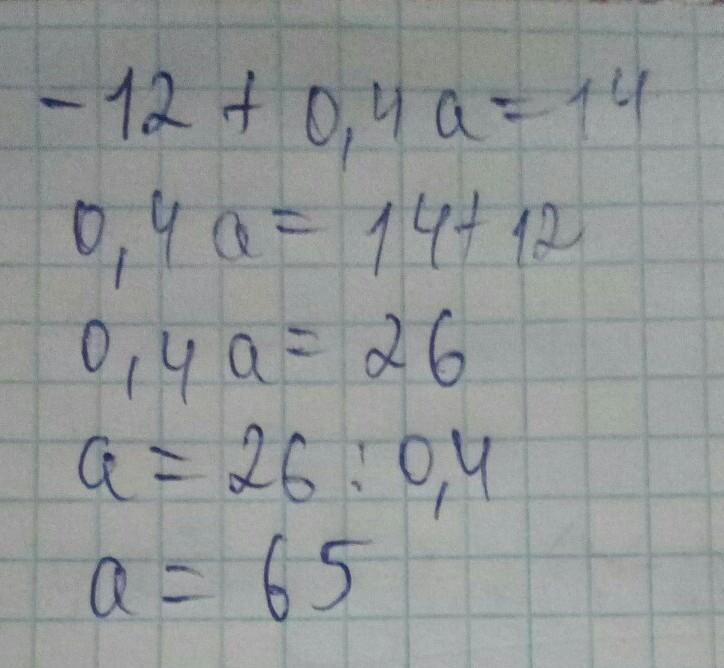 -12 + 0,4 a = 14
0,4 a = 14 + 12
0,4 a = 26
a = 26 : 0,4
a = 65